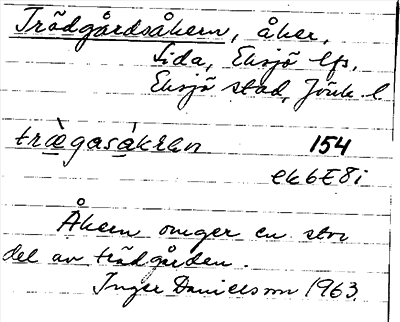 Trädgårdsåkern, åker,
Lida, Eksjö lfs,
Eksjö stad, Jönk. l.
trægasåkrhn 154
ek6E8i
Åkern omger en stor
del av trädgården.
Inger Danielsson 1963.